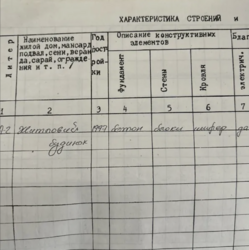 ХАРАКТЕРИСТИКА СТРОЕНИЙ и
Литер
Наименование
жилой дом, мансард
подвал, сени, веран
да, сарай, огражде
ния и т. п. /
Год
пост
рой-
ки
Описание конструктивных
элементов
фундамент
Стены
Кровля
Благ
электрич.
1 2 3 4 5 6 7
Житловий бетон блоки шифер
будинок